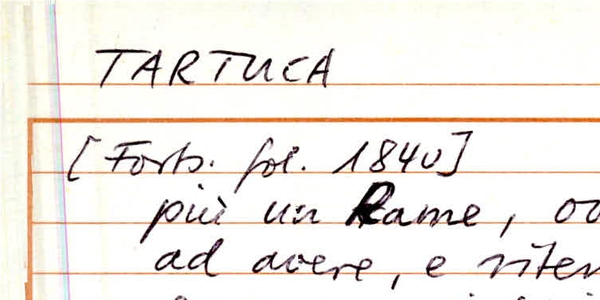 TARTUCA
[Forts. fol. 1840]
più un Rame, ov
ad avere, e riten